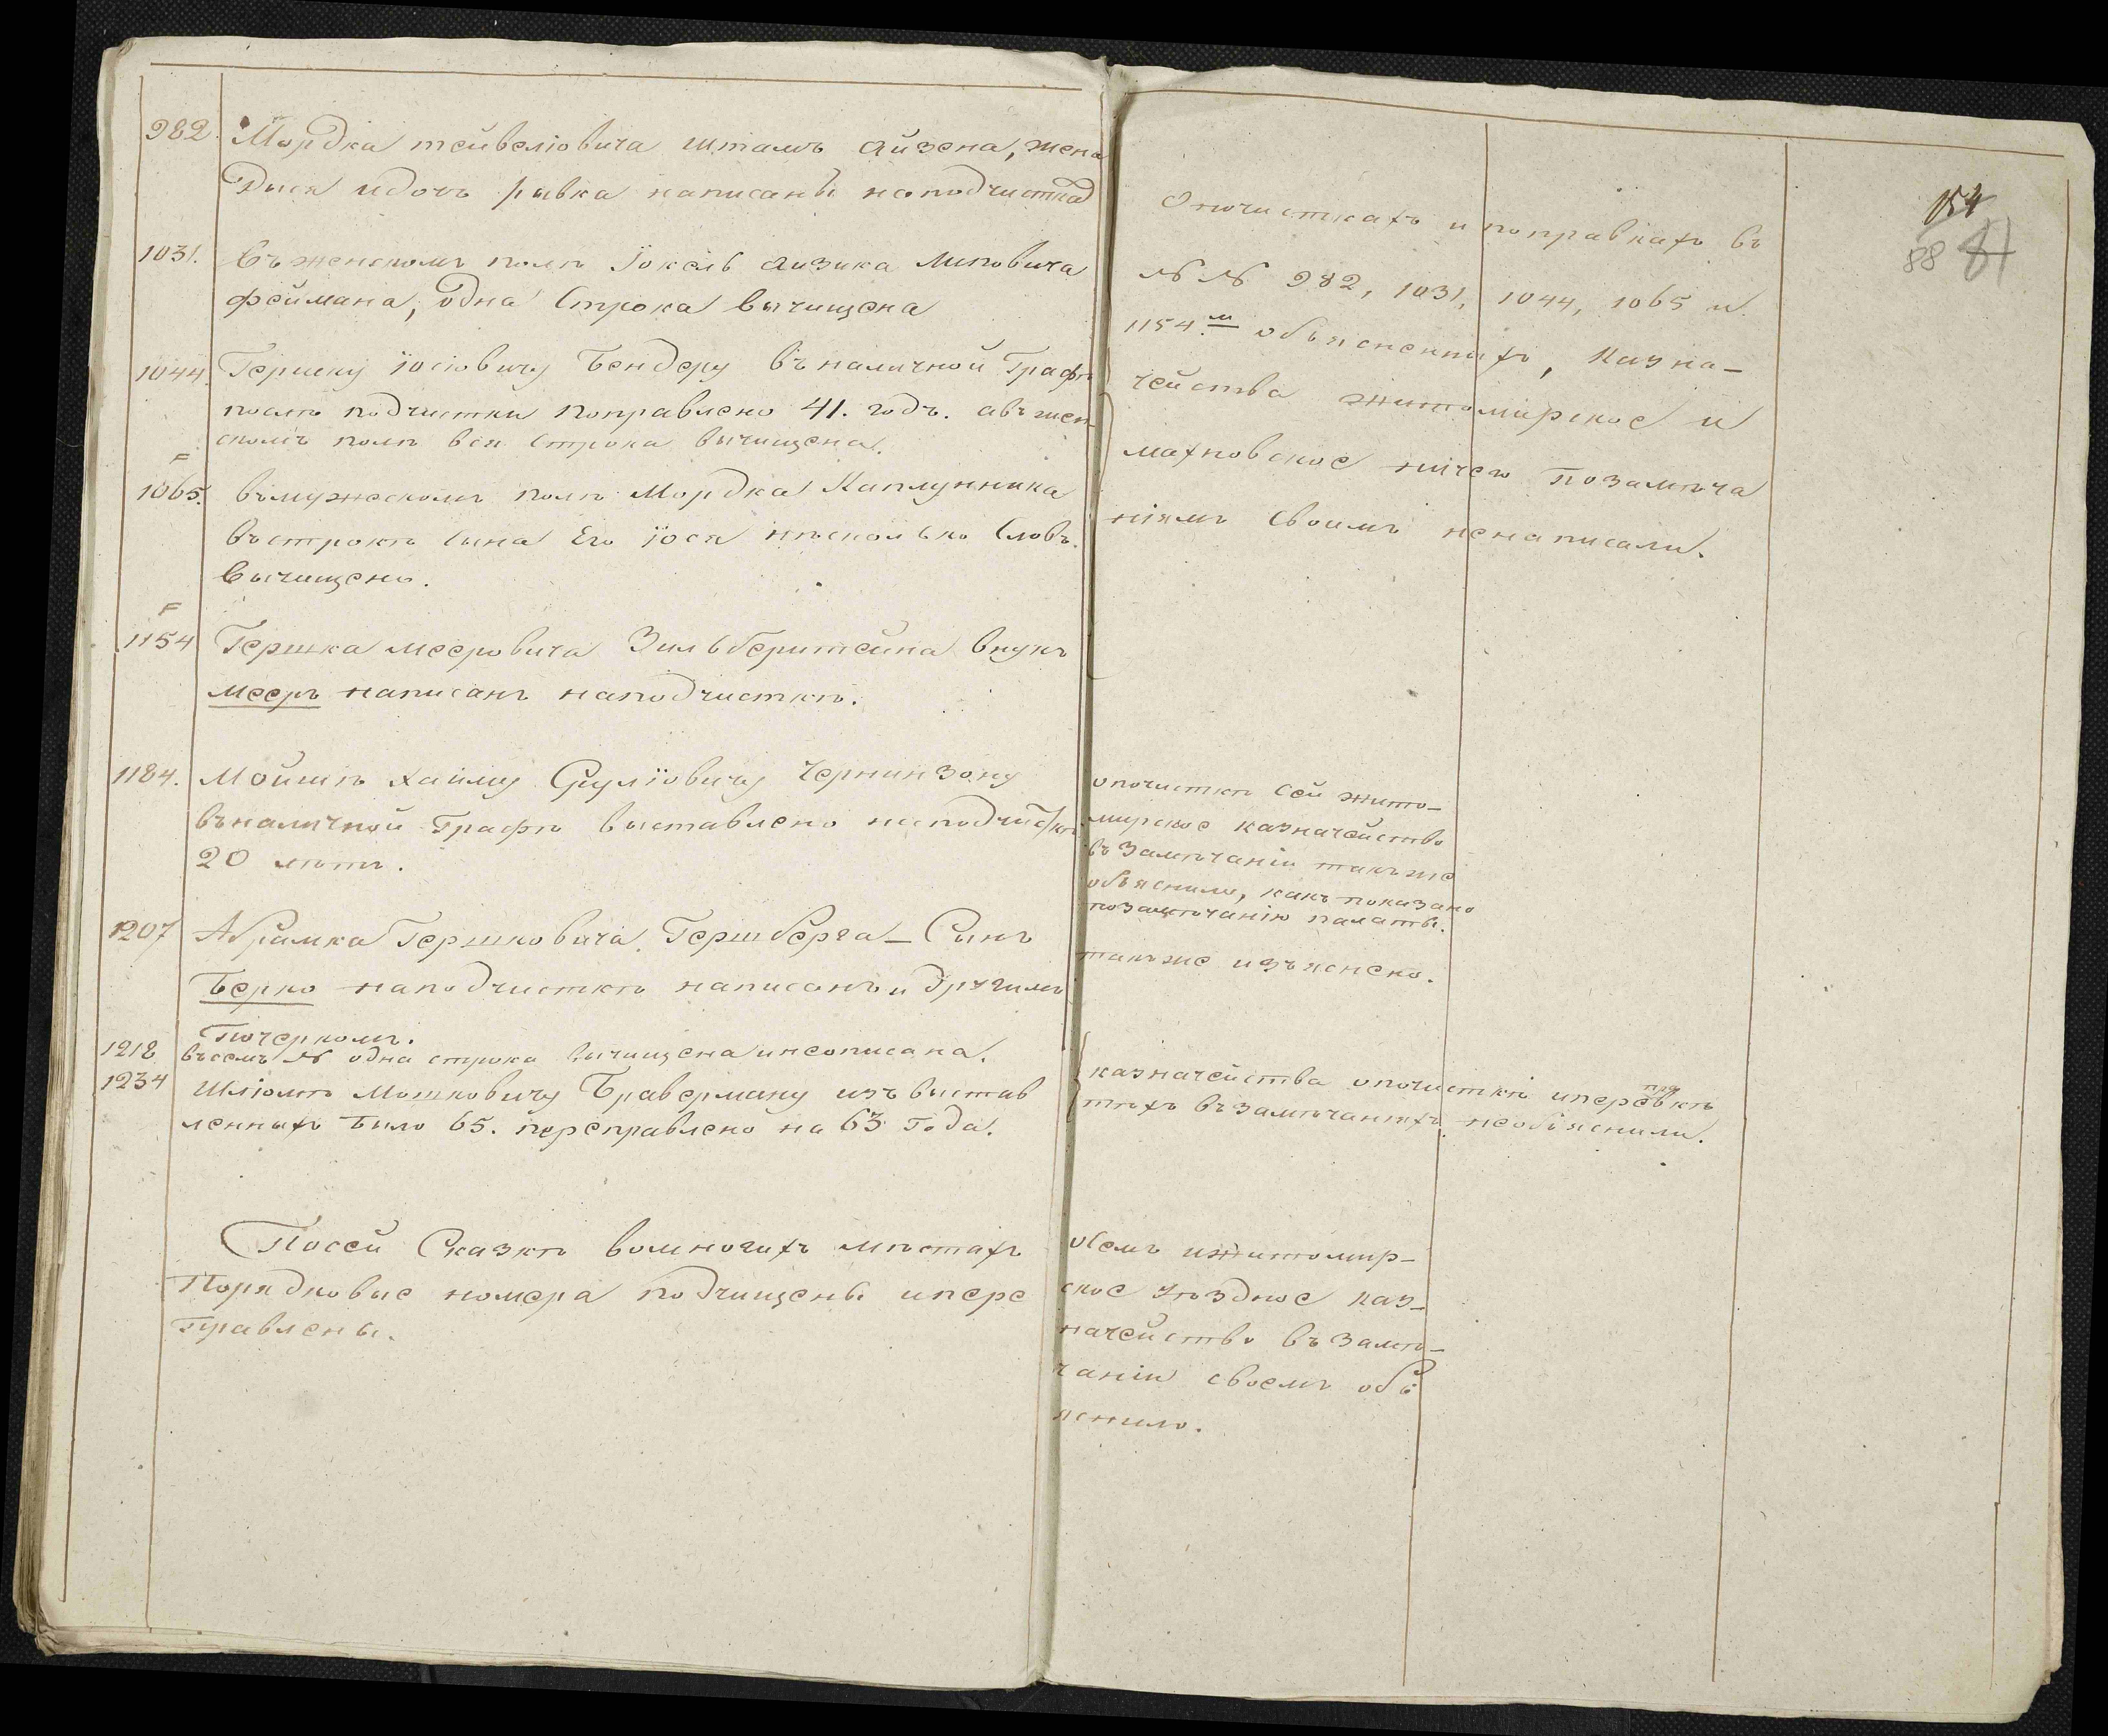 982. Мордка тейвелiовича штамъ айзена, жена
Дыся идочь рывка написаны наподчистка
1031. Въженскомъ полѣ Iокель айзика Липовича
феймана, одна строка вычищена
1044. Гершку iосiовичу Бендеру въналичной Графѣ
послѣ подчистки поправлено 41. годъ. авъжен-
скомъ полѣ вся строка вычищена.
1065. Вмужескомъ полѣ Мордка Каплунника
въстрокѣ сына Его iося нѣсколько словъ
вычищено.
1154 Гершка мееровича Зильберштейна внукъ
мееръ написанъ наподчисткѣ.
1184. Мойшѣ хаиму Сруліовичу Чернинзону
въналичной Графѣ выставлено наподчисткѣ
20 лѣтъ.
1207 Абрамка Гершковича Гершберга – Сынъ
Берко наподчисткѣ написанъ и другимъ
почеркомъ.
1218 въсемъ № одна строка вычищена инеописана.
1234 Шліомѣ Мошковичу Браверману изъ выстав
ленныхъ было 65. переправлено на 63 года.
Посей Сказкѣ вомногихъ мѣстахъ
Порядковые номера подчищены ипере
правлены.
154
88 81
Опочисткахъ и поправкахъ въ
№ № 982, 1031, 1044, 1065 и
1154.м объясненныхъ, Казна-
чейства житомирское и
махновское ничего позамѣча
ніямъ своимъ ненаписали.
опочисткѣ сей жито-
мирское казначейство
въ Замѣчаніи такъ же
объяснило, какъ показано
позамѣчанію палаты.
такъже изъяснено.
казначейства опочисткѣ иперевкѣ
пра
тѣхъ въ замѣчаніяхъ необъяснили.
осемъ ижитомир-
ское уѣздное каз-
начейство въ Замѣ-
чаніи своемъ объ
яснило.